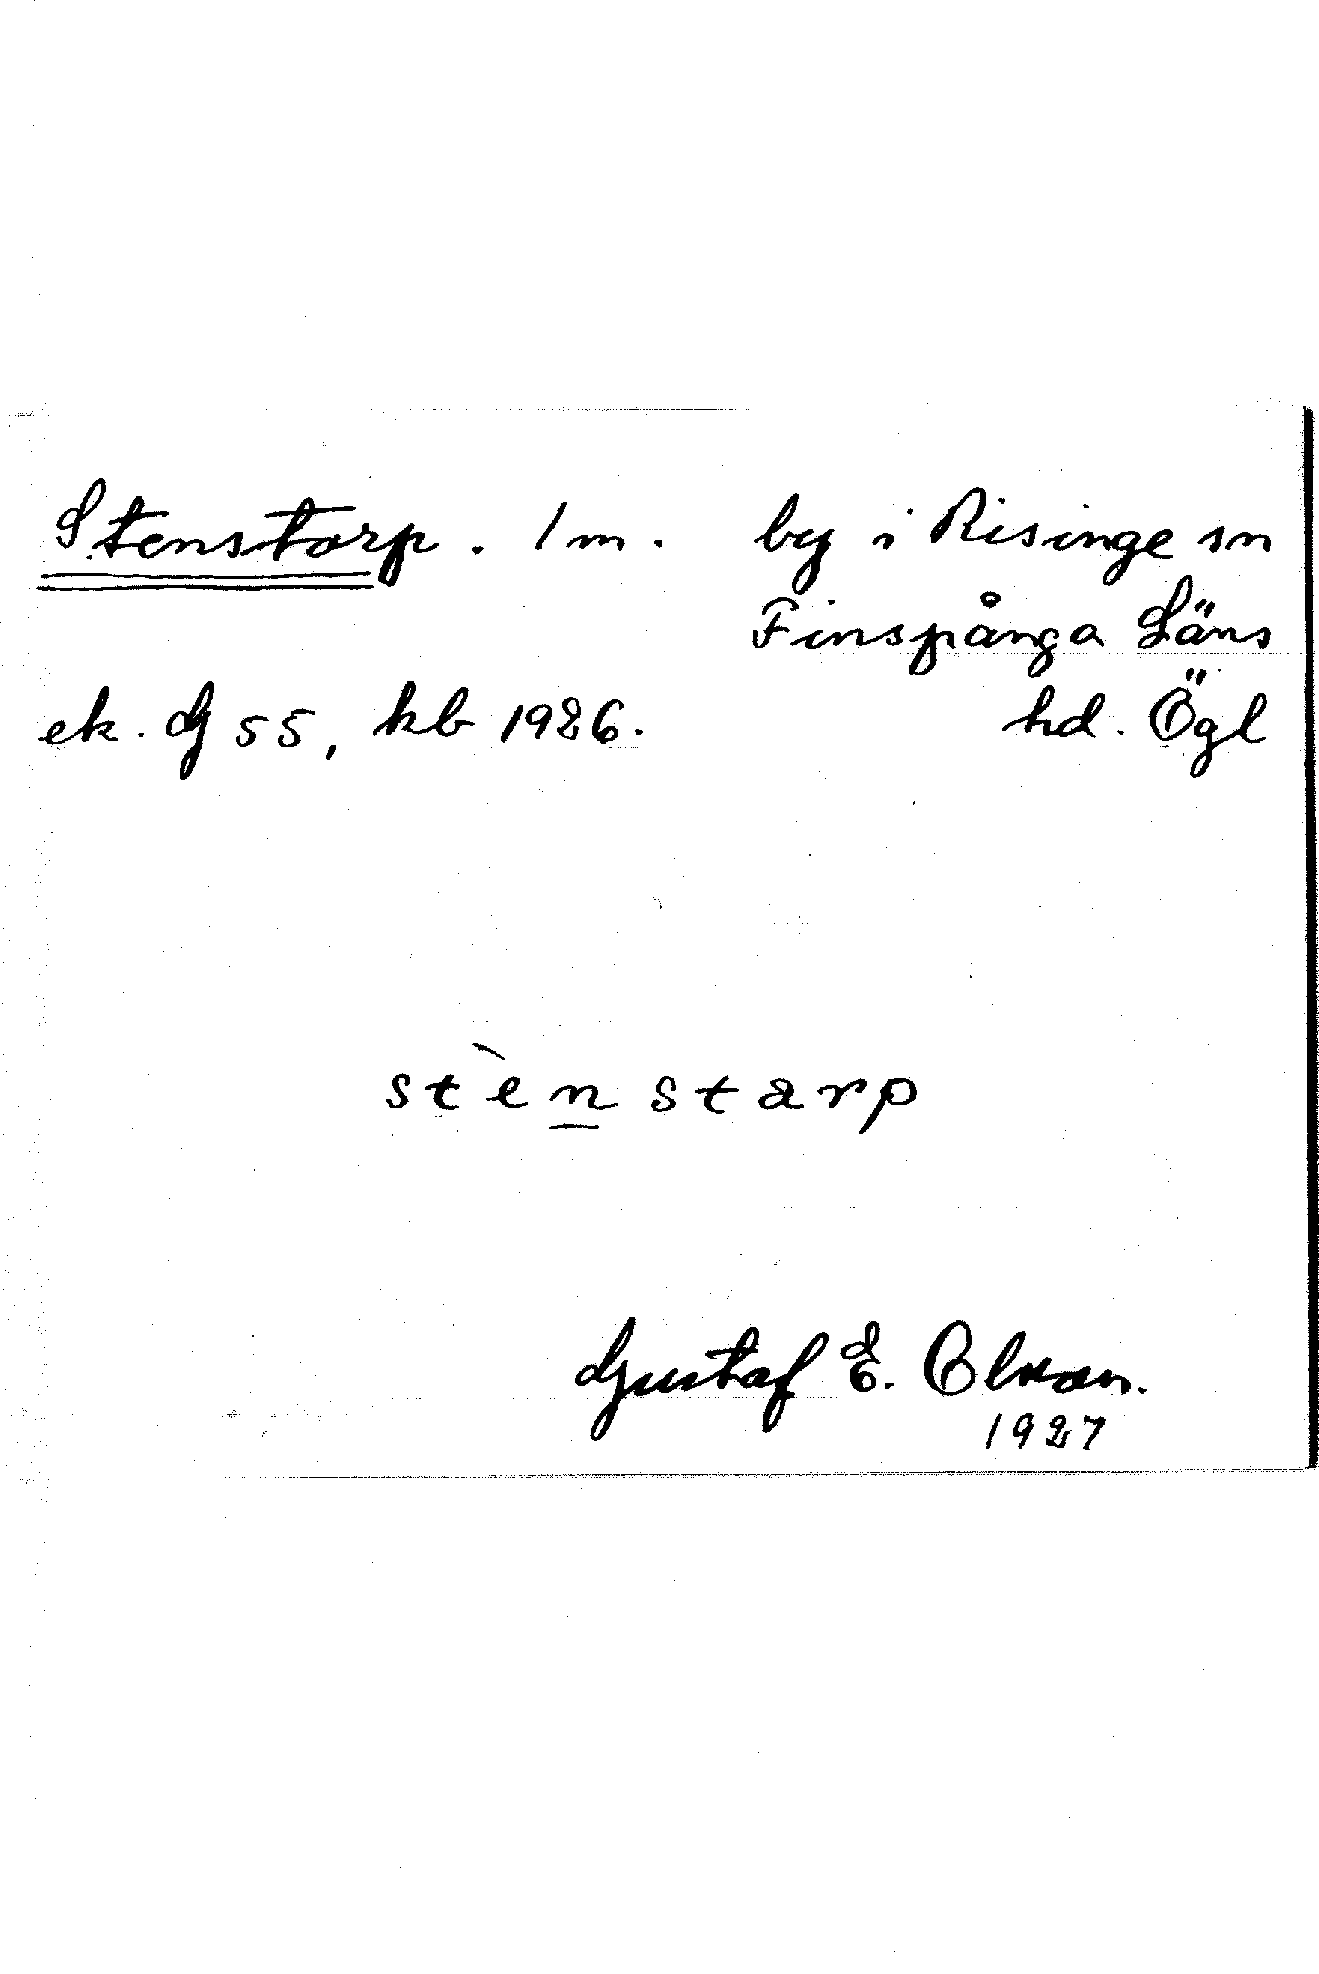 Stenstorp. 1 m. by i Risinge sn
Finspånga Läns
ek. G 55, kb 1926. hd. Ögl
stènstarp
Gustaf E. Olsson.
1927